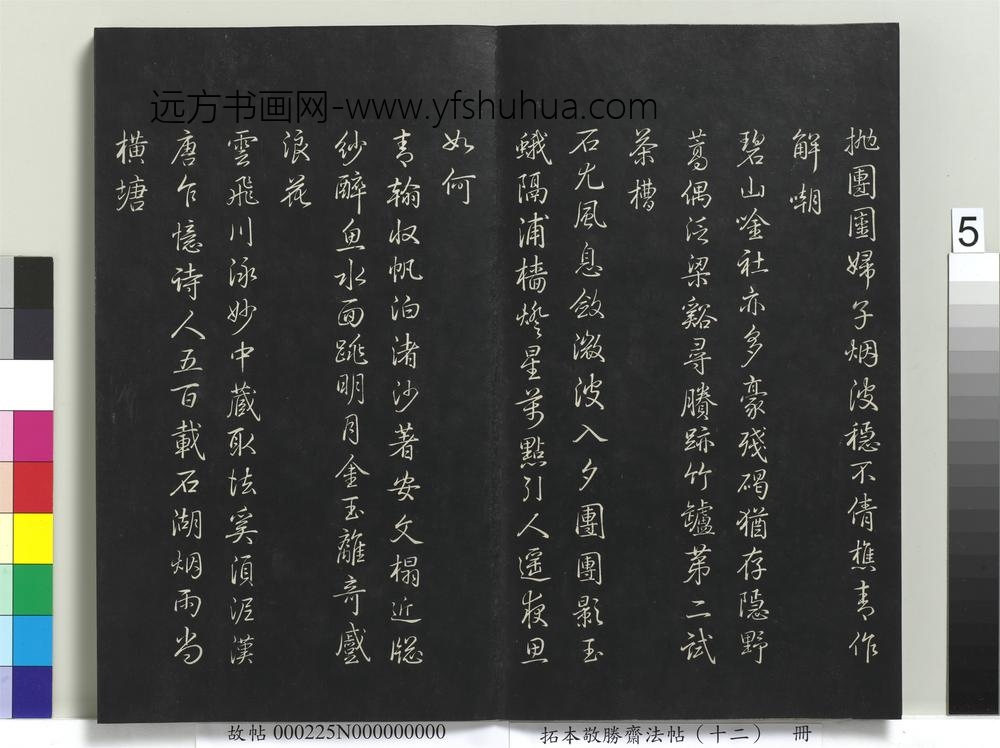 远方书画网-www.yfshuhua.com
抛團圞婦子烟波穩不倩樵青作
解嘲
碧山唫社亦多豪殘碣猶存隱野
蒿偶泛梁谿尋賸跡竹罏第二試
茶槽
石尤風息斂澂波入夕團團影玉
蛾隔浦檣燈星萬點引人遥夜思
如何
青翰收帆泊渚沙著安文榻近牕
紗醉魚水面跳明月金玉離奇蹙
浪花
雲飛川泳妙中蔵取法奚須泥漢
唐乍憶詩人五百載石湖烟雨尚
橫塘
5
故帖 000225N000000000
拓本敬勝齋法帖（十二） 冊